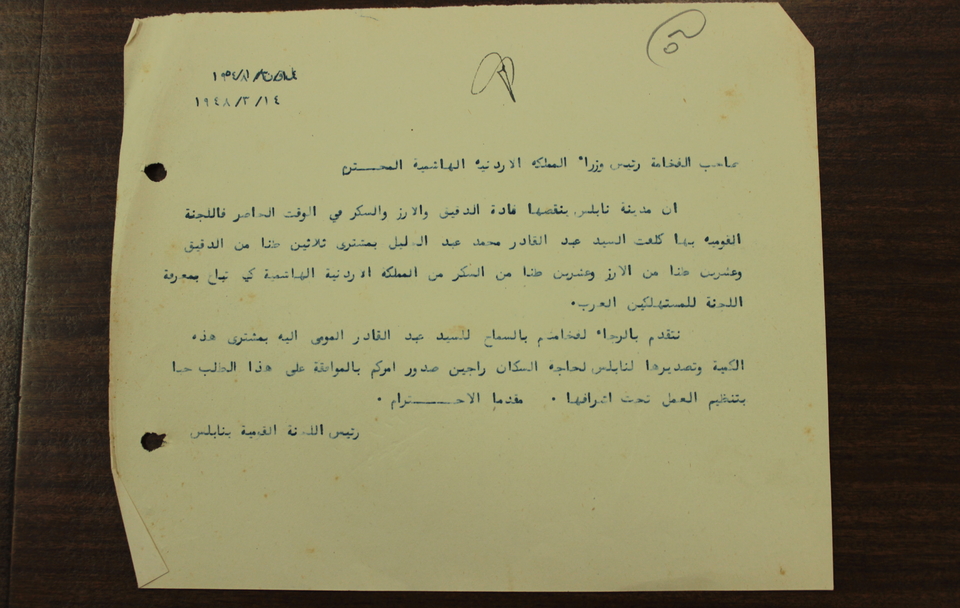 ١٩٤٨/٣/١٤
صاحب الفخامة رئيس وزراء المملكة الاردنية الهاشمية المحـــترم
ان مدينة نابلس ينقصها مادة الدقيق والارز والسكر في الوقت الحاضر فاللجنة
القومية بها كلفت السيد عبد القادر محمد عبد الجليل بمشترى ثلاثين طنا من الدقيق
وعشرين طنا من الارز وعشرين طنا من السكر من المملكة الاردنية الهاشمية كي تباع بمعرفة
اللجنة للمستهلكين العرب.
نتقدم بالرجاء لفخامتكم بالسماح للسيد عبد القادر المومى اليه بمشترى هذه
الكمية وتصديرها لنابلس لحاجة السكان راجين صدور امركم بالموافقة على هذا الطلب حبا
بتنظيم العمل تحت اشرافها . مقدما الاحــــترام .
رئيس اللجنة القومية بنابلس